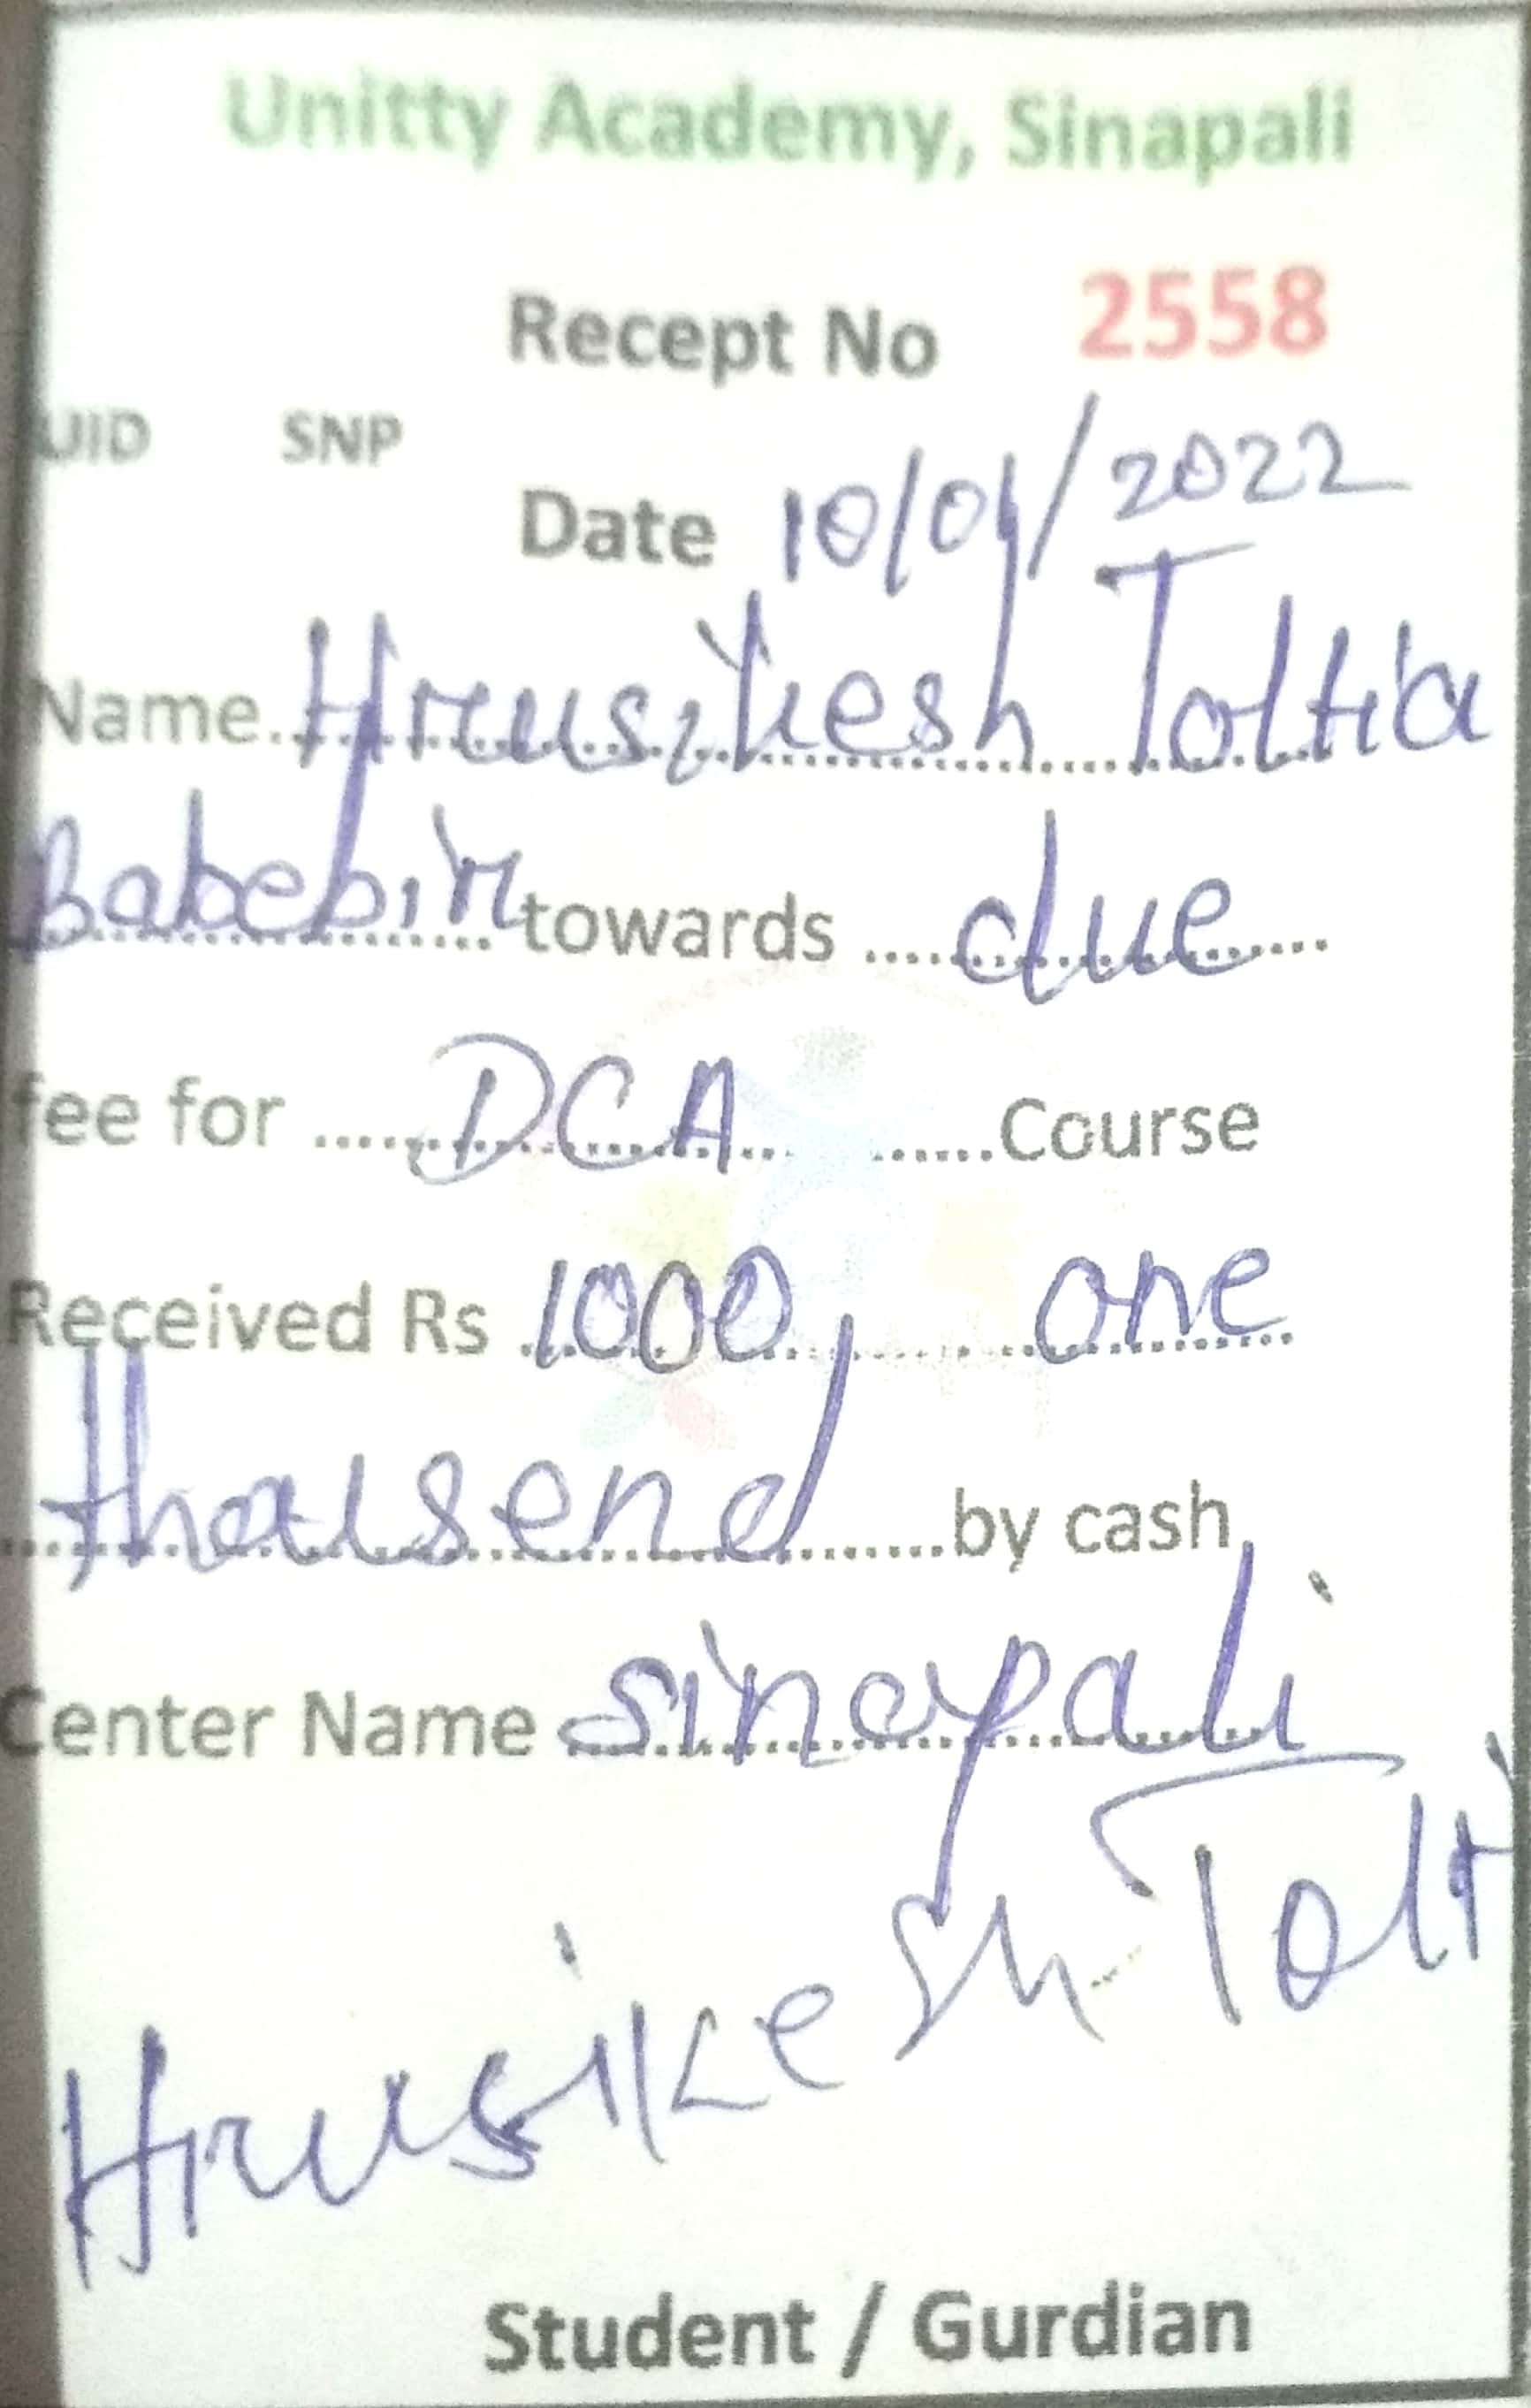 Unitty Academy, Sinapali
Recept No 2558
UID SNP
Date 10/01/2022
Name. Hrusikesh Toltia
Babebir towards .... due
fee for ..... DCA ...... Course
Received Rs 1000, one
thousend .......by cash
Center Name sinapali
Hrusikesh Tolti
Student / Gurdian